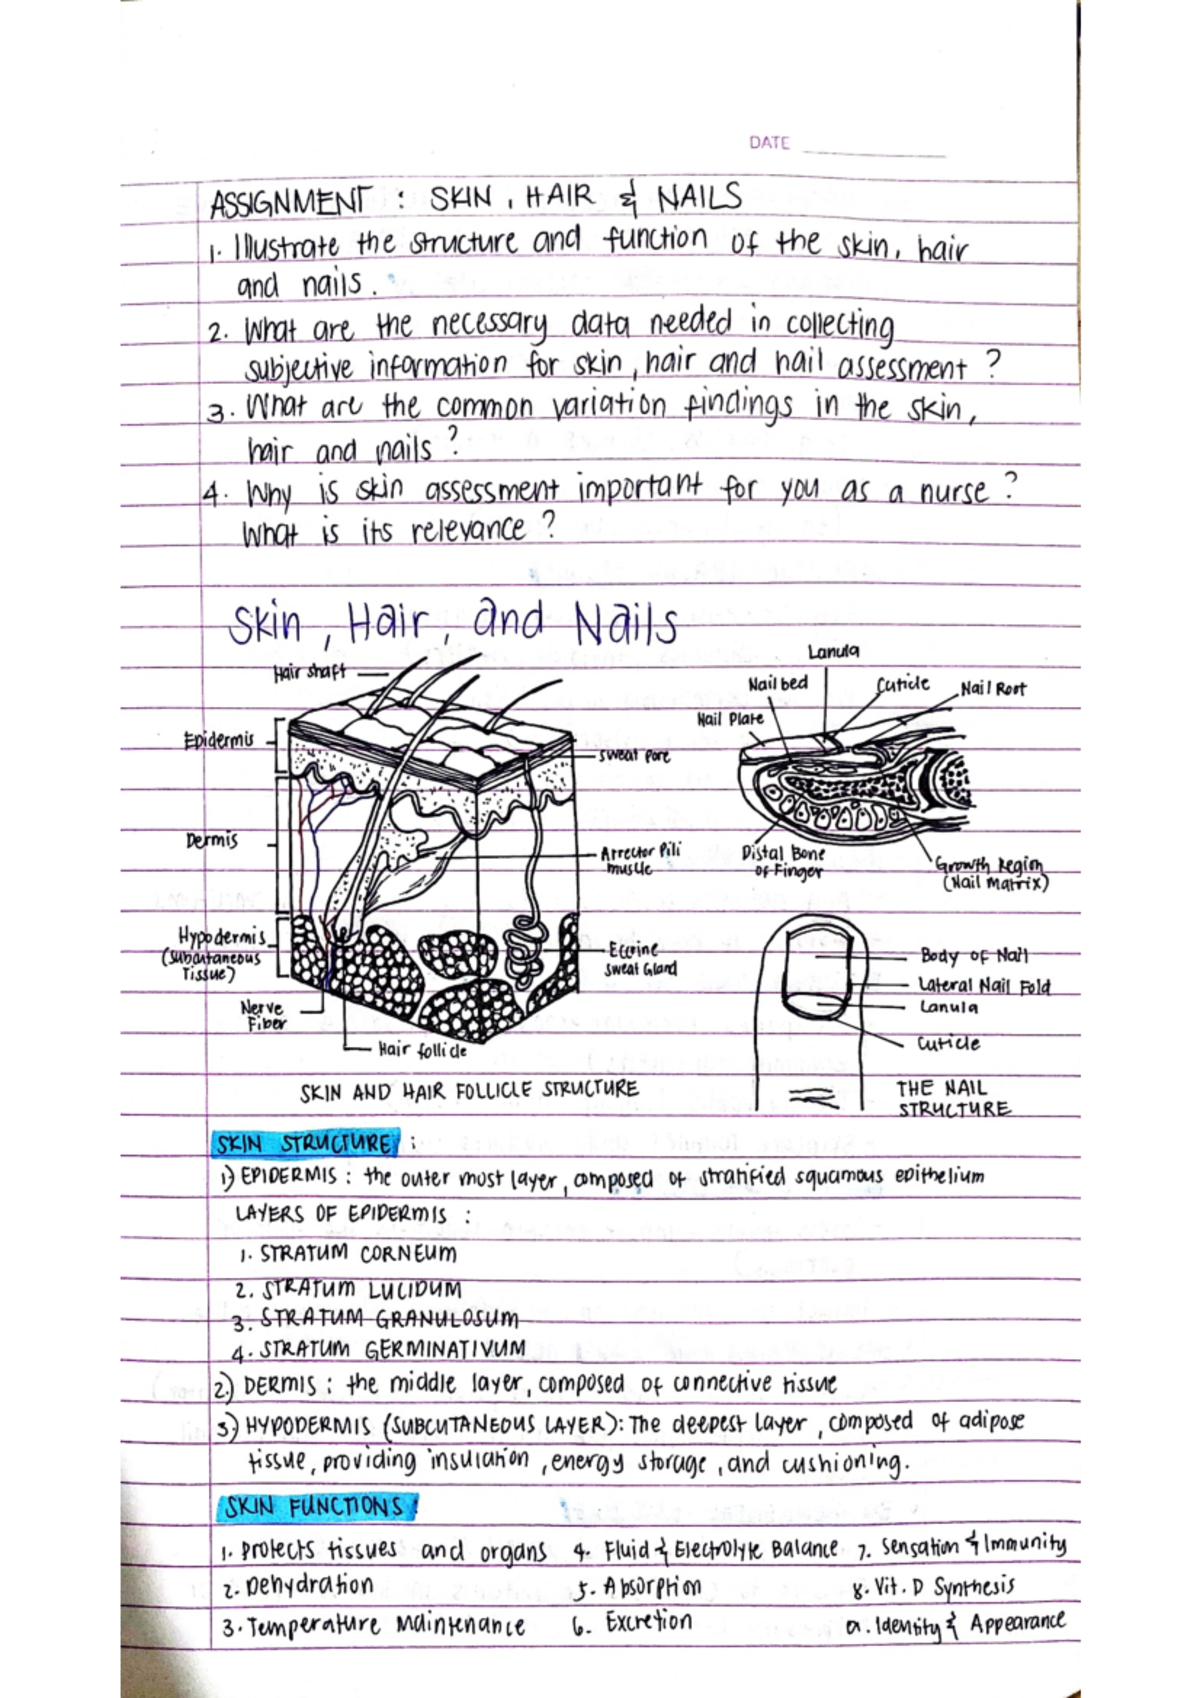 DATE
ASSIGNMENT : SKIN, HAIR & NAILS
1. Illustrate the structure and function of the skin, hair
and nails.
2. What are the necessary data needed in collecting
subjective information for skin, hair and nail assessment ?
3. What are the common variation findings in the skin,
hair and nails ?
4. Why is skin assessment important for you as a nurse ?
What is its relevance ?
Skin, Hair, and Nails
Hair shaft
Epidermis
Dermis
Hypodermis
(subcutaneous
Tissue)
Nerve
Fiber
Hair follicle
sweat pore
Arrector Pili
muscle
Eccrine
sweat Gland
SKIN AND HAIR FOLLICLE STRUCTURE
Lanula
Nail bed
Cuticle
Nail Root
Nail Plate
Distal Bone
of Finger
Growth Region
(Nail Matrix)
Body of Nail
Lateral Nail Fold
Lanula
Cuticle
THE NAIL
STRUCTURE
SKIN STRUCTURE :
1) EPIDERMIS : the outer most layer, composed of stratified squamous epithelium
LAYERS OF EPIDERMIS :
1. STRATUM CORNEUM
2. STRATUM LUCIDUM
3. STRATUM GRANULOSUM
4. STRATUM GERMINATIVUM
2.) DERMIS : the middle layer, composed of connective tissue
3) HYPODERMIS (SUBCUTANEOUS LAYER): The deepest layer, composed of adipose
tissue, providing insulation, energy storage, and cushioning.
SKIN FUNCTIONS :
1. Protects tissues and organs 4. Fluid & Electrolyte Balance 7. Sensation & Immunity
2. Dehydration 5. Absorption 8. Vit. D Synthesis
3. Temperature Maintenance 6. Excretion a. Identity & Appearance